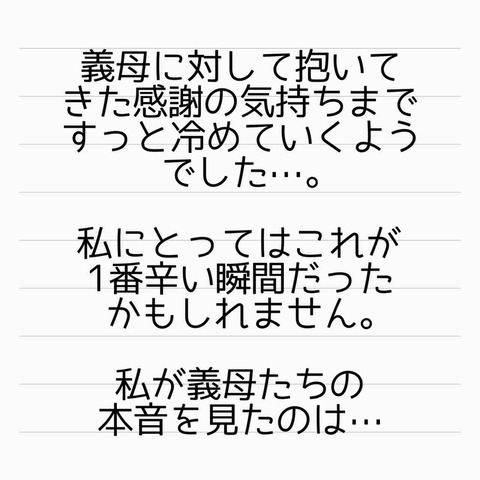 義母に対して抱いて
きた感謝の気持ちまで
すっと冷めていくよう
でした…。
私にとってはこれが
1番辛い瞬間だった
かもしれません。
私が義母たちの
本音を見たのは…